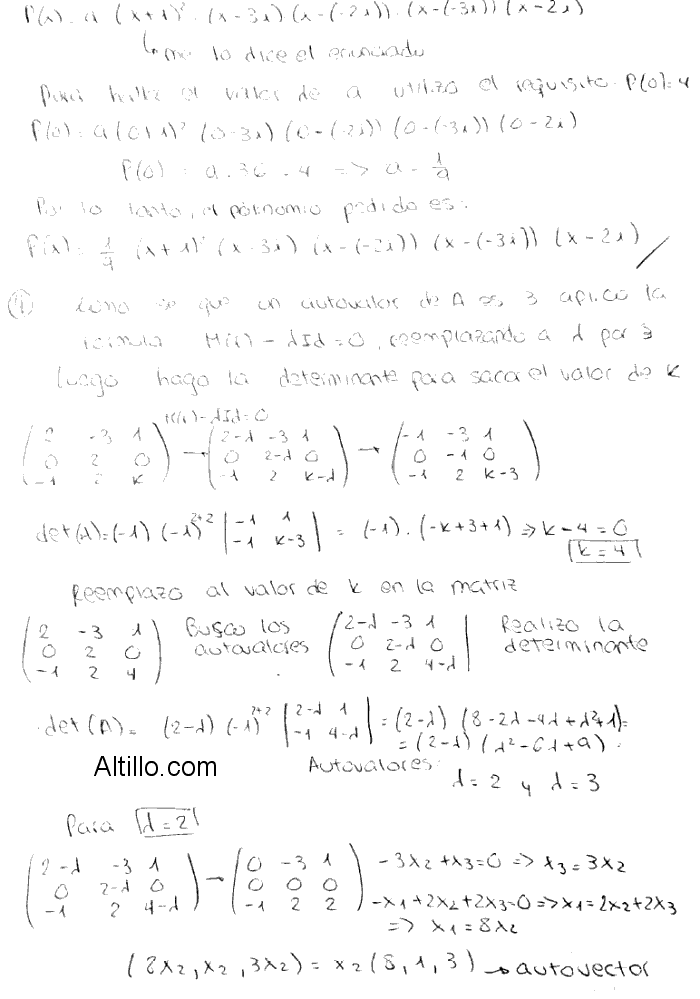 P(x) = a (x+1)² . (x-3i) (x-(-2i)) . (x-(-3i)) (x-2i)
↳ me lo dice el enunciado
Para hallar el valor de a utilizo el requisito P(0)=4
P(0) = a (0+1)² (0-3i) (0-(-2i)) (0-(-3i)) (0-2i)
P(0) = a.36 = 4 => a = 1/9
Por lo tanto, el polinomio pedido es:
P(x) = 1/9 (x+1)² (x-3i) (x-(-2i)) (x-(-3i)) (x-2i)
④ Como se que un autovalor de A es 3 aplico la
formula - λId = 0, reemplazando a λ por 3
luego hago la determinante para saca el valor de k
-λId=0
(2 -3 1) → (2-λ -3 1) → (-1 -3 1)
(0 2 0) (0 2-λ 0) (0 -1 0)
(-1 2 k) (-1 2 k-λ) (-1 2 k-3)
det(A) = (-1) (-1)²⁺² |-1 1| = (-1) . (-k+3+1) => k-4=0
|-1 k-3| k=4
Reemplazo al valor de k en la matriz
(2 -3 1) Busco los (2-λ -3 1| Realizo la
(0 2 0) autovalores (0 2-λ 0| determinante
(-1 2 4) (-1 2 4-λ|
det(A) = (2-λ) (-1)²⁺² |2-λ 1| = (2-λ) (8-2λ-4λ+λ²+1)=
|-1 4-λ| = (2-λ) (λ²-6λ+9).
Altillo.com
Autovalores:
λ = 2 y λ = 3
Para λ=2
(2-λ -3 1) → (0 -3 1) -3x2+x3=0 => x3=3x2
(0 2-λ 0) (0 0 0)
(-1 2 4-λ) (-1 2 2) -x1+2x2+2x3=0 => x1=2x2+2x3
=> x1=8x2
(8x2, x2, 3x2) = x2(8,1,3) → autovector